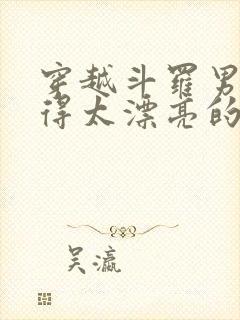 穿越斗罗男
得太漂亮的
吴瀛